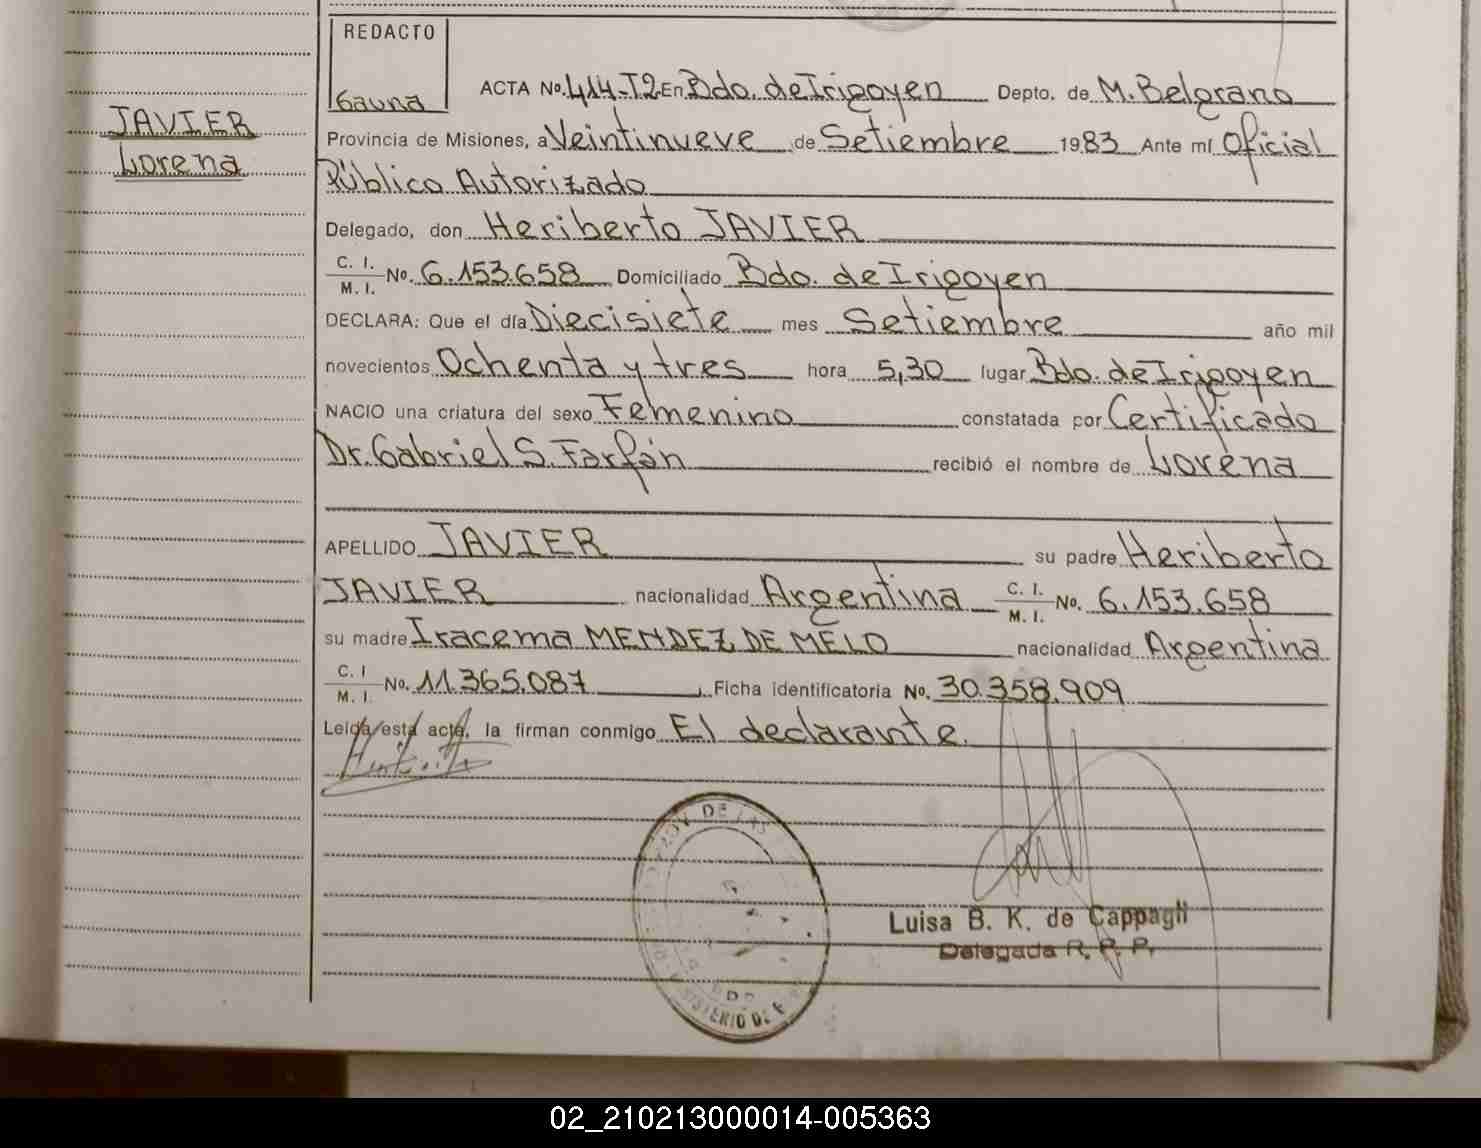 REDACTO
Gauna
JAVIER
Lorena
ACTA No. 414-T2 En Bdo. de Irigoyen Depto. de M. Belgrano
Provincia de Misiones, a Veintinueve de Setiembre 1983 Ante mí Oficial
Público Autorizado
Delegado, don Heriberto JAVIER
C. I. / M. I. No. 6.153.658 Domiciliado Bdo. de Irigoyen
DECLARA: Que el día Diecisiete mes Setiembre año mil
novecientos Ochenta y tres hora 5,30 lugar Bdo. de Irigoyen
NACIO una criatura del sexo Femenino constatada por Certificado
Dr. Gabriel S. Farfán recibió el nombre de Lorena
APELLIDO JAVIER su padre Heriberto
JAVIER nacionalidad Argentina C. I. / M. I. No. 6.153.658
su madre Iracema MENDEZ DE MELO nacionalidad Argentina
C. I / M. I. No. 11.365.087 Ficha identificatoria No. 30.358.909
Leída esta acta, la firman conmigo El declarante.
DE LAS
Luisa B. K. de Cappagli
Delegada R. P. P.
02_210213000014-005363